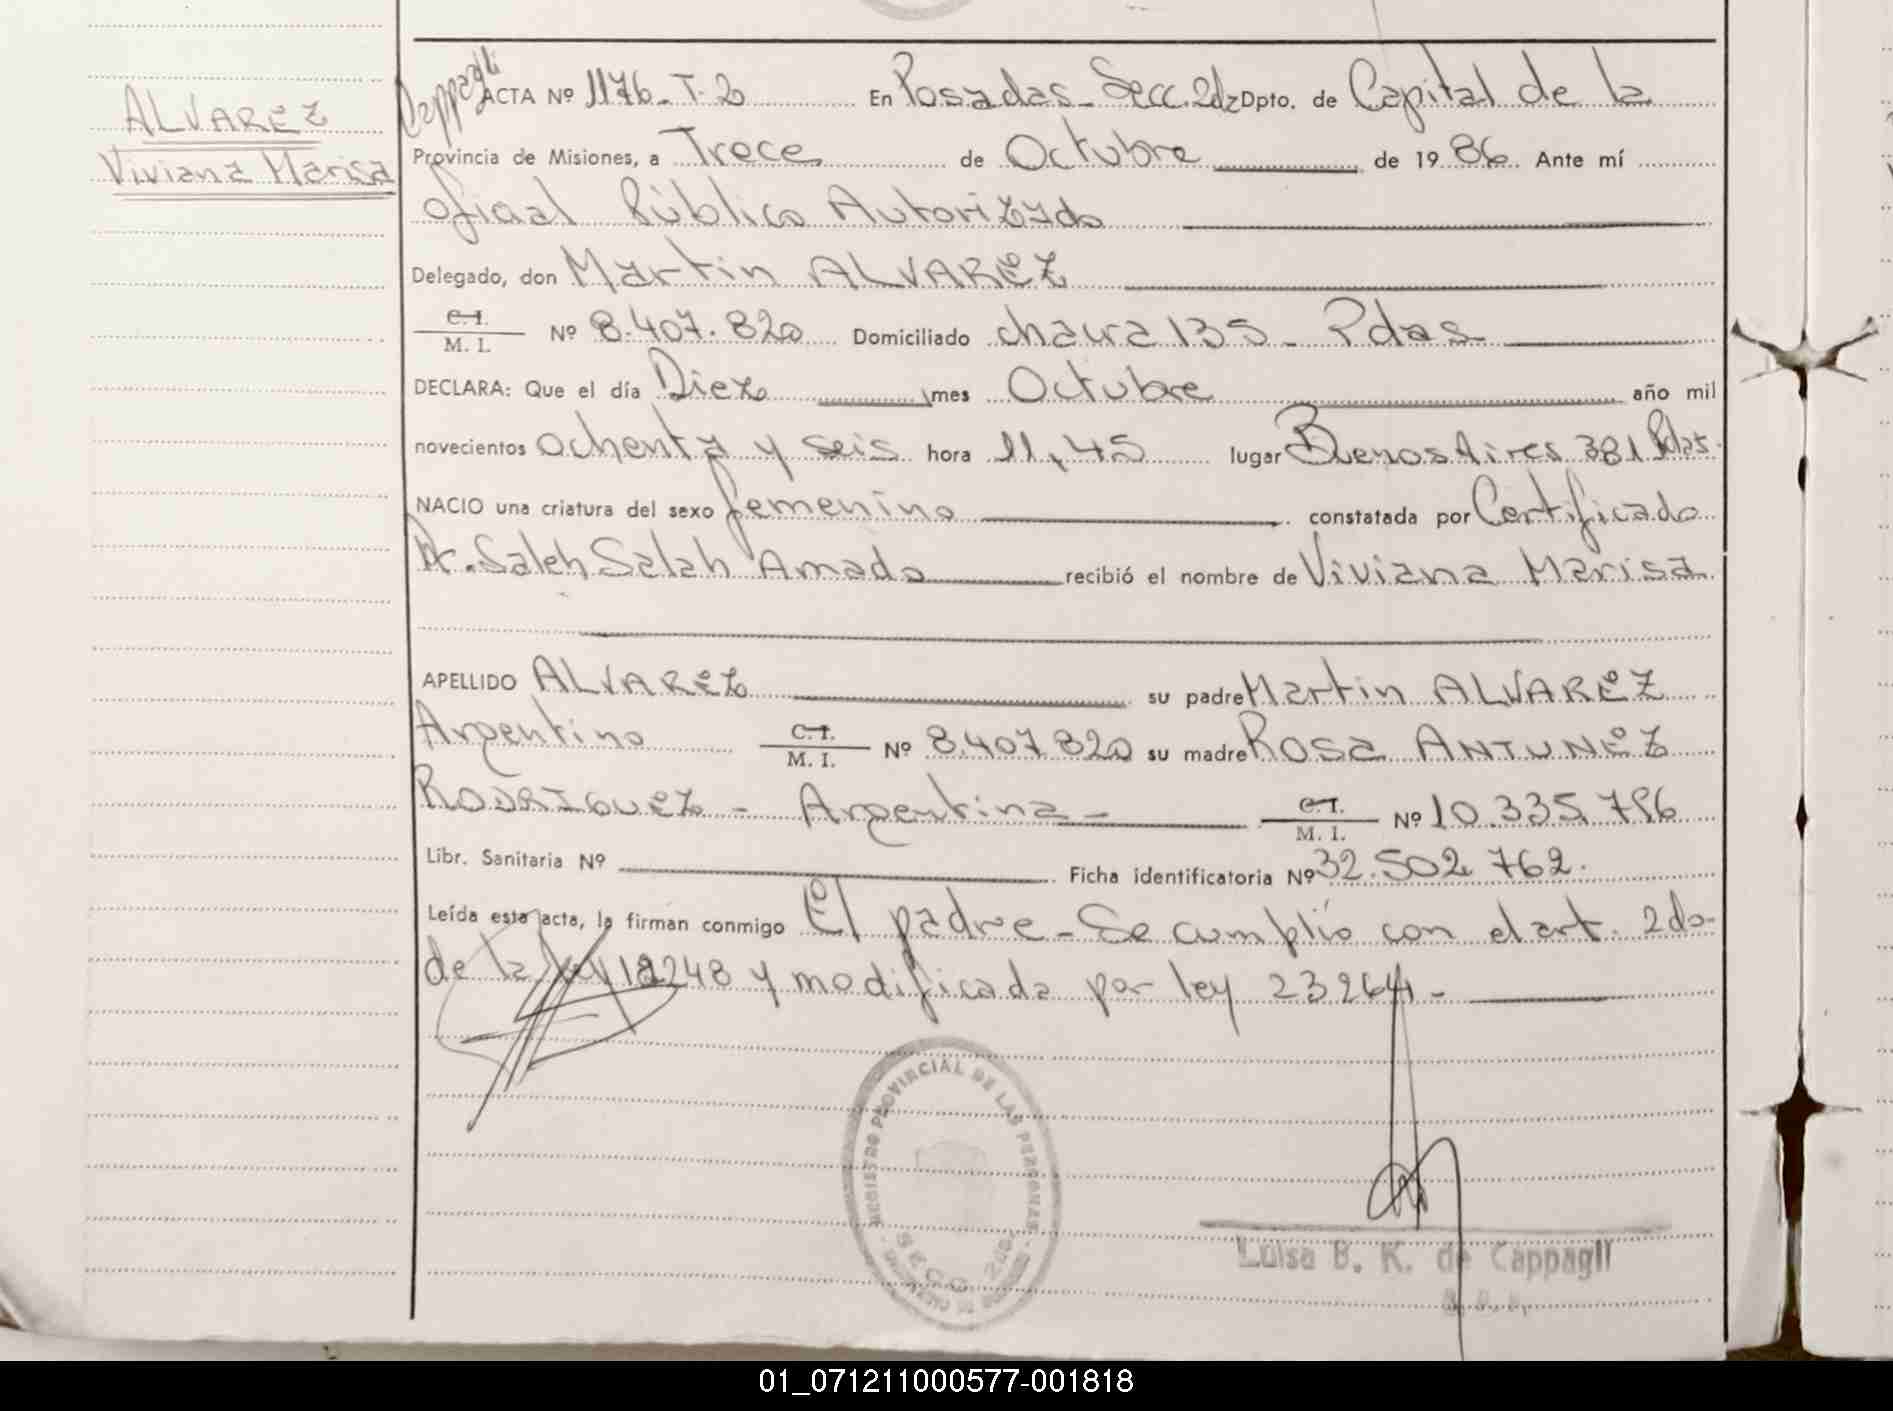 ALVAREZ
Viviana Marisa
Cappagli
ACTA Nº 1176-T.2 En Posadas-Secc.2da Dpto. de Capital de la
Provincia de Misiones, a Trece de Octubre de 1986. Ante mí
Oficial Público Autorizado
Delegado, don Martin ALVAREZ
C.I. / M.I. Nº 8.407.820 Domiciliado chacra 135- Pdas
DECLARA: Que el día Diez mes Octubre año mil
novecientos ochenta y seis hora 11,45 lugar Buenos Aires 381 Pdas.
NACIO una criatura del sexo femenino constatada por Certificado
Dr. Saleh Salah Amado recibió el nombre de Viviana Marisa
APELLIDO ALVAREZ su padre Martin ALVAREZ
Argentino C.I. / M.I. Nº 8.407.820 su madre Rosa ANTUNEZ
RODRIGUEZ - Argentina - C.I. / M.I. Nº 10.335.796
Libr. Sanitaria Nº Ficha identificatoria Nº 32.502.762.
Leída esta acta, la firman conmigo El padre - Se cumplió con el art. 2do-
de la ley 18248 y modificada por ley 23264-
REGISTRO PROVINCIAL DE LAS PERSONAS
SECC. 2da.
Luisa B. K. de Cappagli
01_071211000577-001818